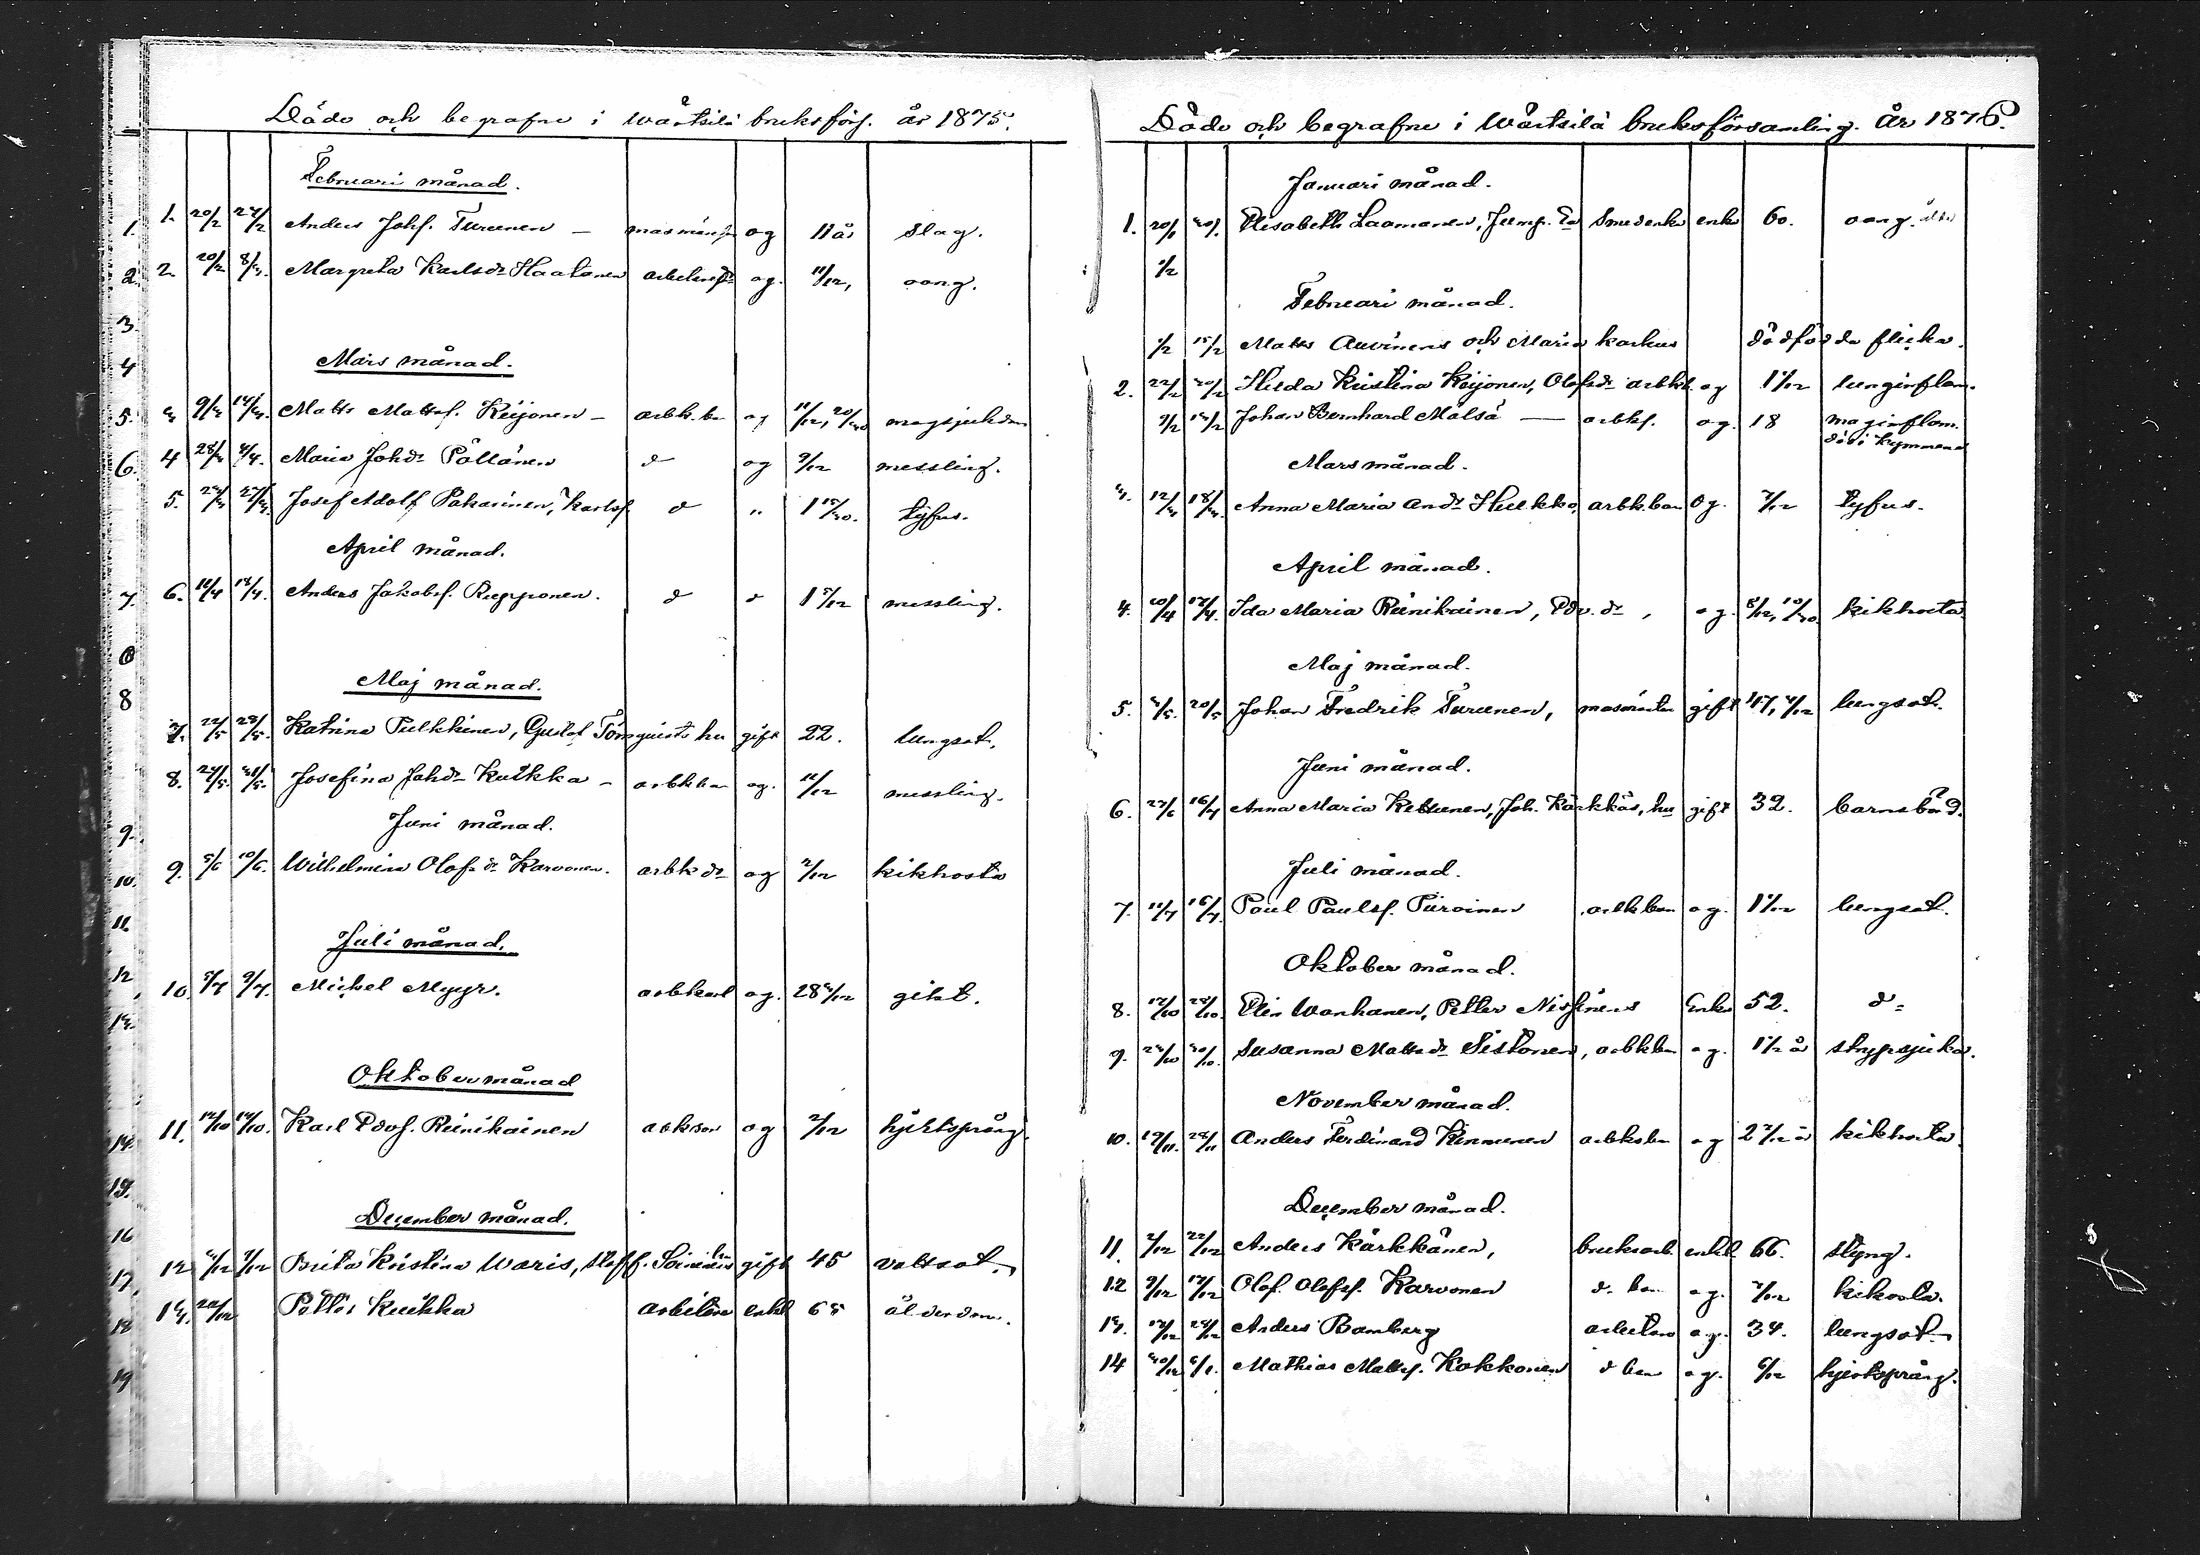 Döde och begrafne i Wärtsilä bruksförs. år 1875.
Februari månad.
1. 1. 20/2 27/2 Anders Johs. Turunen — masmäns og 11 år slag.
2. 2. 20/2 8/3. Margreta Karlsdr Haatanen og. 11/12, oang.
3.
4 Mars månad.
5. 3 9/3 14/3. Matts Mattss. Keijonen — arbk. bn og 11/12, 20/30 magsjukdom
6. 4 28/3 4/4. Maria Johdr Pöllänen d og 9/12 messling.
5. Josef Adolf Pakarinen, Karlss. d " 1 15/30. tyfus.
April månad.
7. 6. 11/4 18/4. Anders Jakobss. Repponen. d d 1 5/12 messling.
8 Maj månad.
7. 22/5 23/5. Katrina Pulkkinen, Gustaf Törnquists hu gift 22. lungsot.
8. 24/5. 31/5. Josefina Johdr Kukka — arbkbn og. 11/12 messling.
9. Juni månad.
10. 9. 5/6 10/6. Wilhelmina Olofsdr Karvonen. arbkdr og 2/12 kikhosta
11.
Juli månad.
12 10. 5/7 9/7. Michel Myyr. arbkarl og. 28 3/12 gikt.
13.
Oktober månad
14. 11. 12/10 14/10. Karl Edvs. Reinikainen arbkson og 2/12 hjertsprång.
15.
16 December månad.
17. 12 3/12 7/12 Brita Kristina Waris, Staff. Soininens hu gift 45 vattsot.
18 13. 20/12 Petter Kukka arbetare enkl 65 ålderdom.
19
Döde och begrafne i Wärtsilä bruksförsamling. År 1876.
Januari månad.
1. 20/1 30/1. Elisabeth Laamanen, Jump. smedenka enka 60. oang.
1/2
Februari månad.
1/2 15/2 Matts Auvinens och Maria Karhus dödfödda flicka.
2. 22/2 20/2 Hilda Kristina Keijonen, Olofsdr arbkb. og 1 1/12 lunginflam.
9/2 14/2 Johan Bernhard Mälsä — arbks. og. 18 maginflam.
död i Kymmene
Mars månad.
3. 12/3 18/3. Anna Maria Andr Hulkko, arbkbarn og. 7/12 tyfus.
April månad.
4. 10/4 17/4. Ida Maria Reinikainen, Edv. dr, og. 8/12, 10/30. kikhosta.
Maj månad.
5. 3/5. 20/5 Johan Fredrik Turunen, masmästen gift 47, 4/12 lungsot.
Juni månad.
6. 27/6 16/7 Anna Maria Kettunen, Joh. Kärkkäs, hu gift 32. barnsbörd.
Juli månad.
7. 11/7 16/7. Paul Paulss. Piiroinen arbkbarn og. 1 1/12 lungsot.
Oktober månad.
8. 12/10 28/10. Elin Wanhanen, Petter Nissinens Enka 52. d=
9. 23/10 30/10. Susanna Mattsdr Sistonen, arbkbn og. 1 1/2 år strypsjuka.
November månad.
10. 19/11. 28/11 Anders Ferdinand Kinnunen arbksbn og 2 2/12 år kikhosta.
December månad.
11. 2/12 22/12 Anders Kärkkänen, bruksarb. enkl. 66. styng.
12 9/12 17/12 Olof Olofss. Karvonen d. bn og. 7/12 kikosta.
13. 17/12 28/12 Anders Bamberg arbetare og. 34. lungsot.
14 30/12 6/1. Mathias Mattss. Kokkonen d bn og. 6/12 hjertsprång.